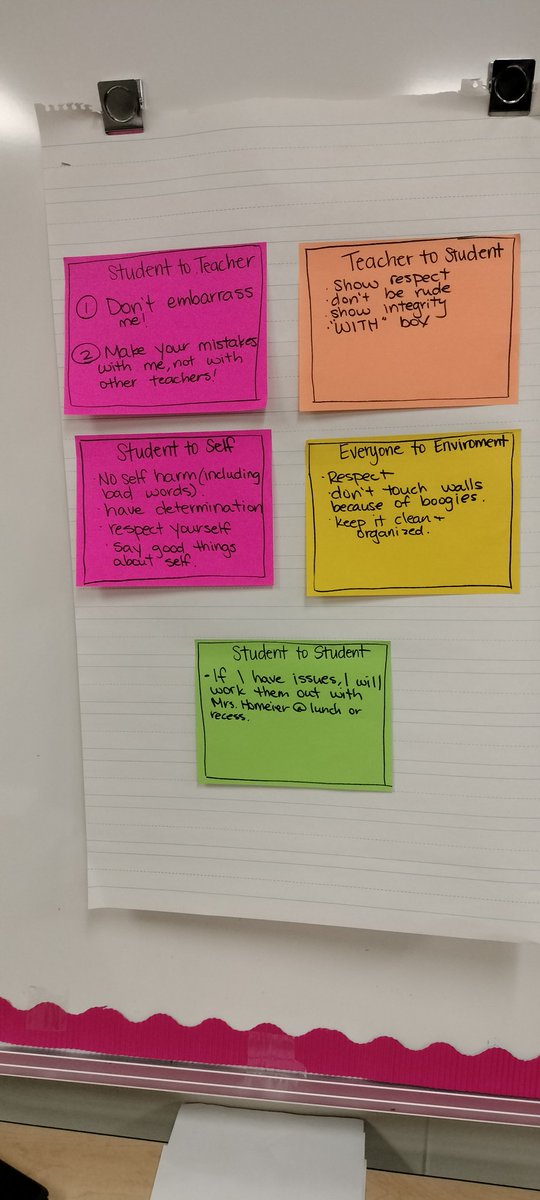 Student to Teacher
① Don't embarrass
me!
② Make your mistakes
with me, not with
other teachers!
Teacher to Student
· Show respect
· don't be rude
· show integrity
· "WITH" box
Student to Self
· No self harm (including
bad words)
· have determination
· respect yourself
· say good things
about self.
Everyone to Enviroment
· Respect
· don't touch walls
because of boogies.
· keep it clean +
organized.
Student to Student
· If I have issues, I will
work them out with
Mrs. Homeier @ lunch or
recess.